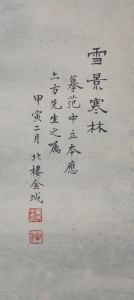 雪景寒林
摹范中立本應
六方先生之屬
甲寅二月 北樓金城